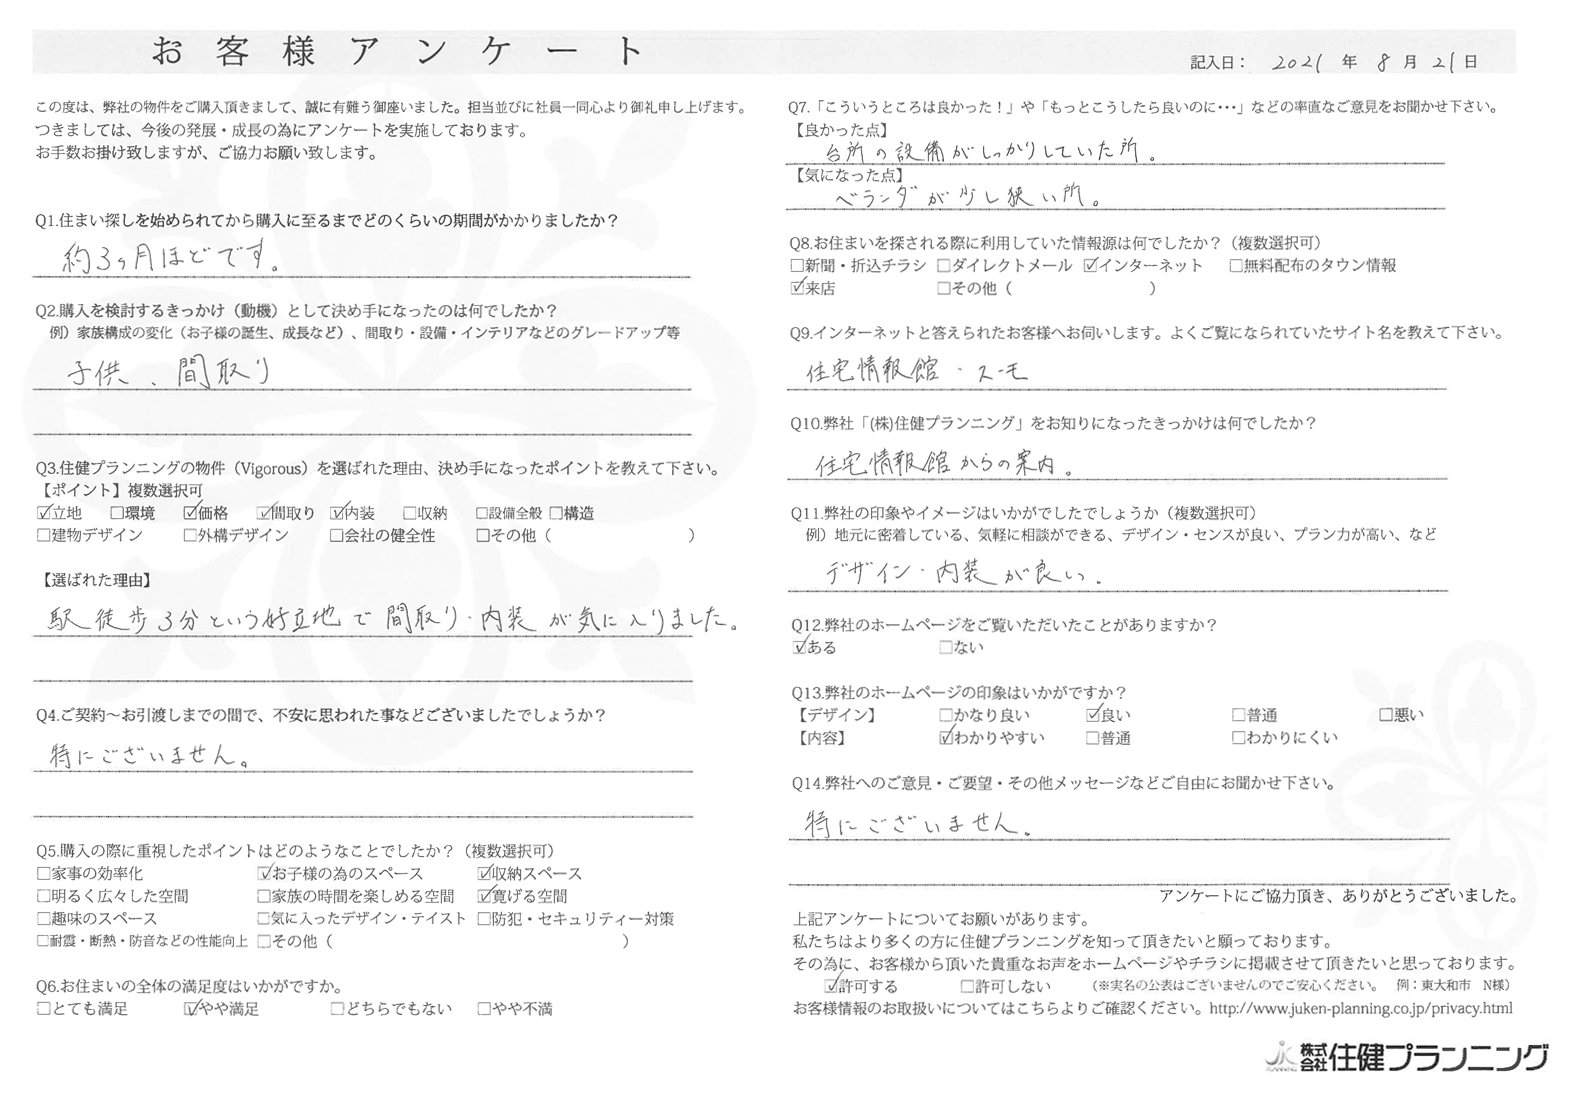 お客様アンケート
記入日: 2021 年 8 月 21 日
この度は、弊社の物件をご購入頂きまして、誠に有難う御座いました。担当並びに社員一同心より御礼申し上げます。
つきましては、今後の発展・成長の為にアンケートを実施しております。
お手数お掛け致しますが、ご協力お願い致します。
Q1.住まい探しを始められてから購入に至るまでどのくらいの期間がかかりましたか？
約3ヶ月ほどです。
Q2.購入を検討するきっかけ（動機）として決め手になったのは何でしたか？
例）家族構成の変化（お子様の誕生、成長など）、間取り・設備・インテリアなどのグレードアップ等
子供、間取り
Q3.住健プランニングの物件（Vigorous）を選ばれた理由、決め手になったポイントを教えて下さい。
【ポイント】複数選択可
☑立地 □環境 ☑価格 ☑間取り ☑内装 □収納 □設備全般 □構造
□建物デザイン □外構デザイン □会社の健全性 □その他（ ）
【選ばれた理由】
駅徒歩3分という好立地で間取り・内装が気に入りました。
Q4.ご契約～お引渡しまでの間で、不安に思われた事などございましたでしょうか？
特にございません。
Q5.購入の際に重視したポイントはどのようなことでしたか？（複数選択可）
□家事の効率化 ☑お子様の為のスペース ☑収納スペース
□明るく広々した空間 □家族の時間を楽しめる空間 ☑寛げる空間
□趣味のスペース □気に入ったデザイン・テイスト □防犯・セキュリティー対策
□耐震・断熱・防音などの性能向上 □その他（ ）
Q6.お住まいの全体の満足度はいかがですか。
□とても満足 ☑やや満足 □どちらでもない □やや不満
Q7.「こういうところは良かった！」や「もっとこうしたら良いのに・・・」などの率直なご意見をお聞かせ下さい。
【良かった点】
台所の設備がしっかりしていた所。
【気になった点】
ベランダが少し狭い所。
Q8.お住まいを探される際に利用していた情報源は何でしたか？（複数選択可）
□新聞・折込チラシ □ダイレクトメール ☑インターネット □無料配布のタウン情報
☑来店 □その他（ ）
Q9.インターネットと答えられたお客様へお伺いします。よくご覧になられていたサイト名を教えて下さい。
住宅情報館・スーモ
Q10.弊社「(株)住健プランニング」をお知りになったきっかけは何でしたか？
住宅情報館からの案内。
Q11.弊社の印象やイメージはいかがでしたでしょうか（複数選択可）
例）地元に密着している、気軽に相談ができる、デザイン・センスが良い、プラン力が高い、など
デザイン・内装が良い。
Q12.弊社のホームページをご覧いただいたことがありますか？
☑ある □ない
Q13.弊社のホームページの印象はいかがですか？
【デザイン】 □かなり良い ☑良い □普通 □悪い
【内容】 ☑わかりやすい □普通 □わかりにくい
Q14.弊社へのご意見・ご要望・その他メッセージなどご自由にお聞かせ下さい。
特にございません。
アンケートにご協力頂き、ありがとうございました。
上記アンケートについてお願いがあります。
私たちはより多くの方に住健プランニングを知って頂きたいと願っております。
その為に、お客様から頂いた貴重なお声をホームページやチラシに掲載させて頂きたいと思っております。
☑許可する □許可しない （※実名の公表はございませんのでご安心ください。 例：東大和市 N様）
お客様情報のお取扱いについてはこちらよりご確認ください。http://www.juken-planning.co.jp/privacy.html
JK PLANNING 株式会社住健プランニング